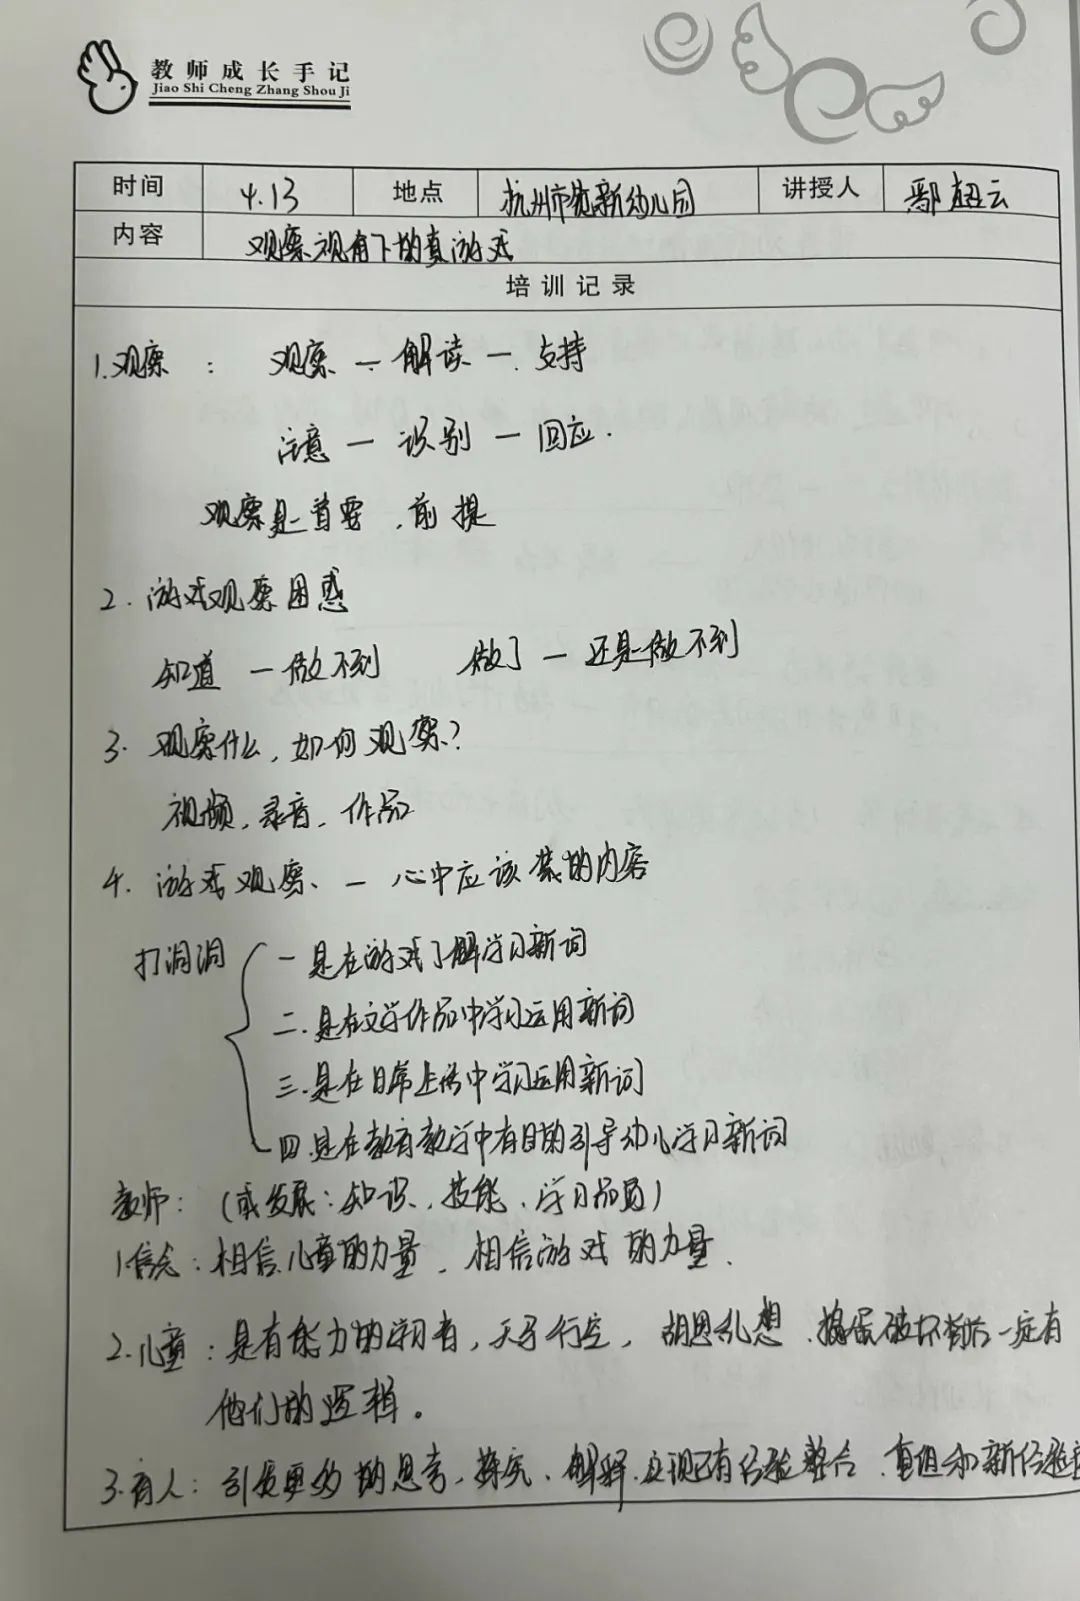 教师成长手记
Jiao Shi Cheng Zhang Shou Ji
时间 4.13 地点 杭州市 新幼儿园 讲授人 鄢超云
内容 观察视角下的真游戏
培训记录
1.观察： 观察 — 解读 — 支持
注意 — 识别 — 回应.
观察是首要、前提
2. 游戏观察困惑
知道 — 做不到 做了 — 还是做不到
3. 观察什么，如何观察？
视频、录音、作品
4. 游戏观察、— 心中应该装的内容
打洞洞 一 是在游戏了解学习新词
二.是在文学作品中学习运用新词
三.是在日常生活中学习运用新词
四.是在教育教学中有目的引导幼儿学习新词
教师：（或发展：知识、技能、学习品质）
1.信念：相信儿童的力量、相信游戏的力量.
2.儿童：是有能力的学习者，天马行空，胡思乱想、捣蛋破坏背后一定有
他们的逻辑。
3.育人：引发更多的思考、探究、解释.实现已有经验整合、重组和新经验